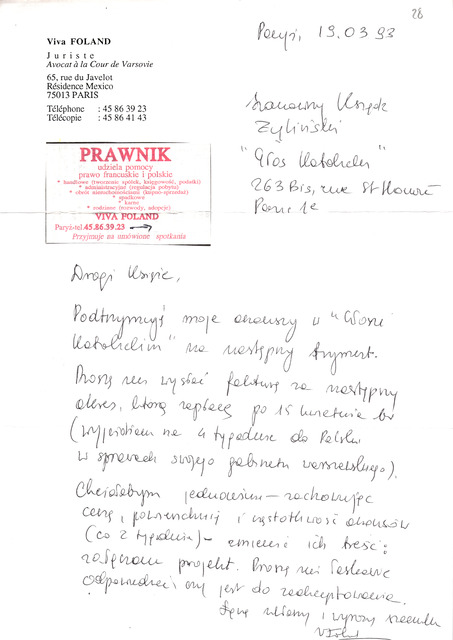 28
Viva FOLAND
Juriste
Avocat à la Cour de Varsovie
65, rue du Javelot
Résidence Mexico
75013 PARIS
Téléphone : 45 86 39 23
Télécopie : 45 86 41 43
Paryż, 19.03.93
Szanowny Ksiądz
Żyliński
"Głos Katolicki"
263 Bis, rue St Honoré
Paris 1e
PRAWNIK
udziela pomocy
prawo francuskie i polskie
* handlowe (tworzenie spółek, księgowość, podatki)
* administracyjne (regulacja pobytu)
* obrót nieruchomościami (kupno-sprzedaż)
* spadkowe
* karne
* rodzinne (rozwody, adopcje)
VIVA FOLAND
Paryż-tel.45.86.39.23
Przyjmuje na umówione spotkania
Drogi Księże,
Podtrzymuję moje anonsy w "Głosie
Katolickim" na następny trymestr.
Proszę mi wysłać fakturę za następny
okres, którą zapłacę po 15 kwietnia br
(wyjeżdżam na 4 tygodnie do Polski
w sprawach swojego gabinetu warszawskiego).
Chciałabym jednocześnie - zachowując
cenę, powierzchnię i częstotliwość anonsów
(co 2 tygodnie) - zmienić ich treść:
załączam projekt. Proszę mi łaskawie
odpowiedzieć czy jest do zaakceptowania.
Łączę ukłony i wyrazy szacunku